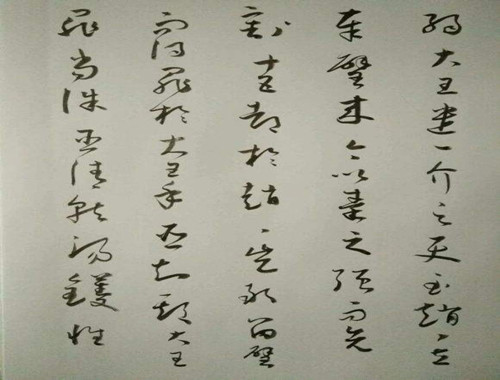 弱大王遣一介之使至趙趙立
奉璧來今以秦之強而先
割十五都於趙趙豈敢留璧
而得罪於大王乎臣知欺大王
罪當誅臣請就湯鑊惟